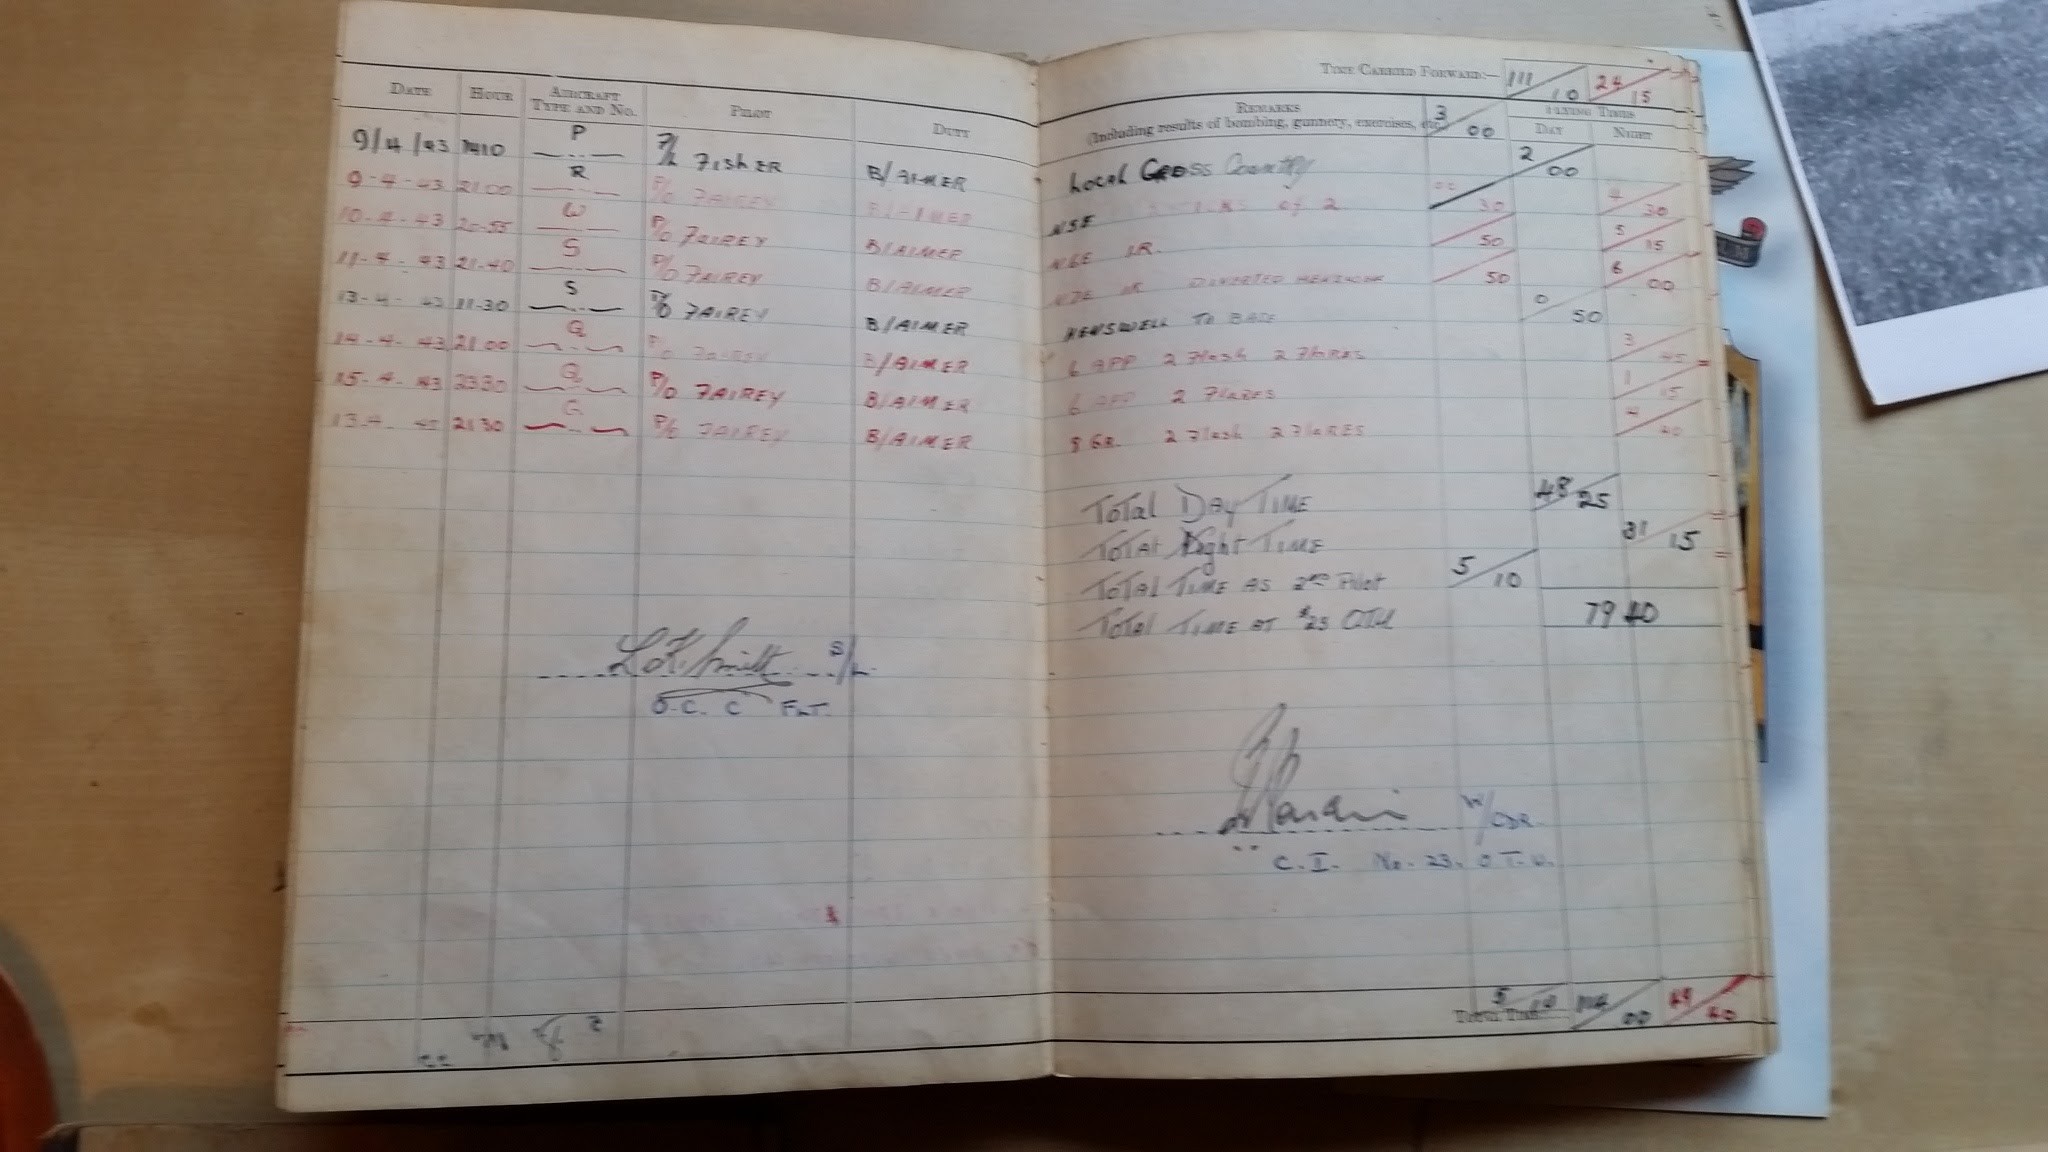 TIME CARRIED FORWARD:— 111/10 24/15
DATE HOUR AIRCRAFT TYPE AND NO. PILOT DUTY REMARKS (Including results of bombing, gunnery, exercises, etc.) 3/00 FLYING TIMES DAY NIGHT
9/4/43 1410 P FISHER B/AIMER Local Cross Country 2/00
9-4-43 21.00 R P/O FAIREY of 2 30 4/30
10-4-43 20-55 W P/O FAIREY B/AIMER 50 5/15
11-4-43 21-40 S P/O FAIREY B/AIMER DIVERTED 50 6/00
13-4-43 11-30 S P/O FAIREY B/AIMER HEMSWELL TO BASE 0/50
14-4-43 21.00 Q P/O FAIREY B/AIMER 6 APP 2 Flash 2 FLARES 3/45
15-4-43 2330 Q P/O FAIREY B/AIMER 6 APP 2 FLARES 1/15
13-4- 2130 P/O FAIREY B/AIMER 2 Flash 2 FLARES
Total Day TIME 48/25
Total Night TIME 31/15
Total TIME AS 2ND Pilot 5/10
Total TIME AT 23 OTU 79 40
L K Smith S/L.
O.C. C FLT.
W/CDR.
C.I. No. 23. O.T.U.
TOTAL TIME 5/10 114/00 49/40